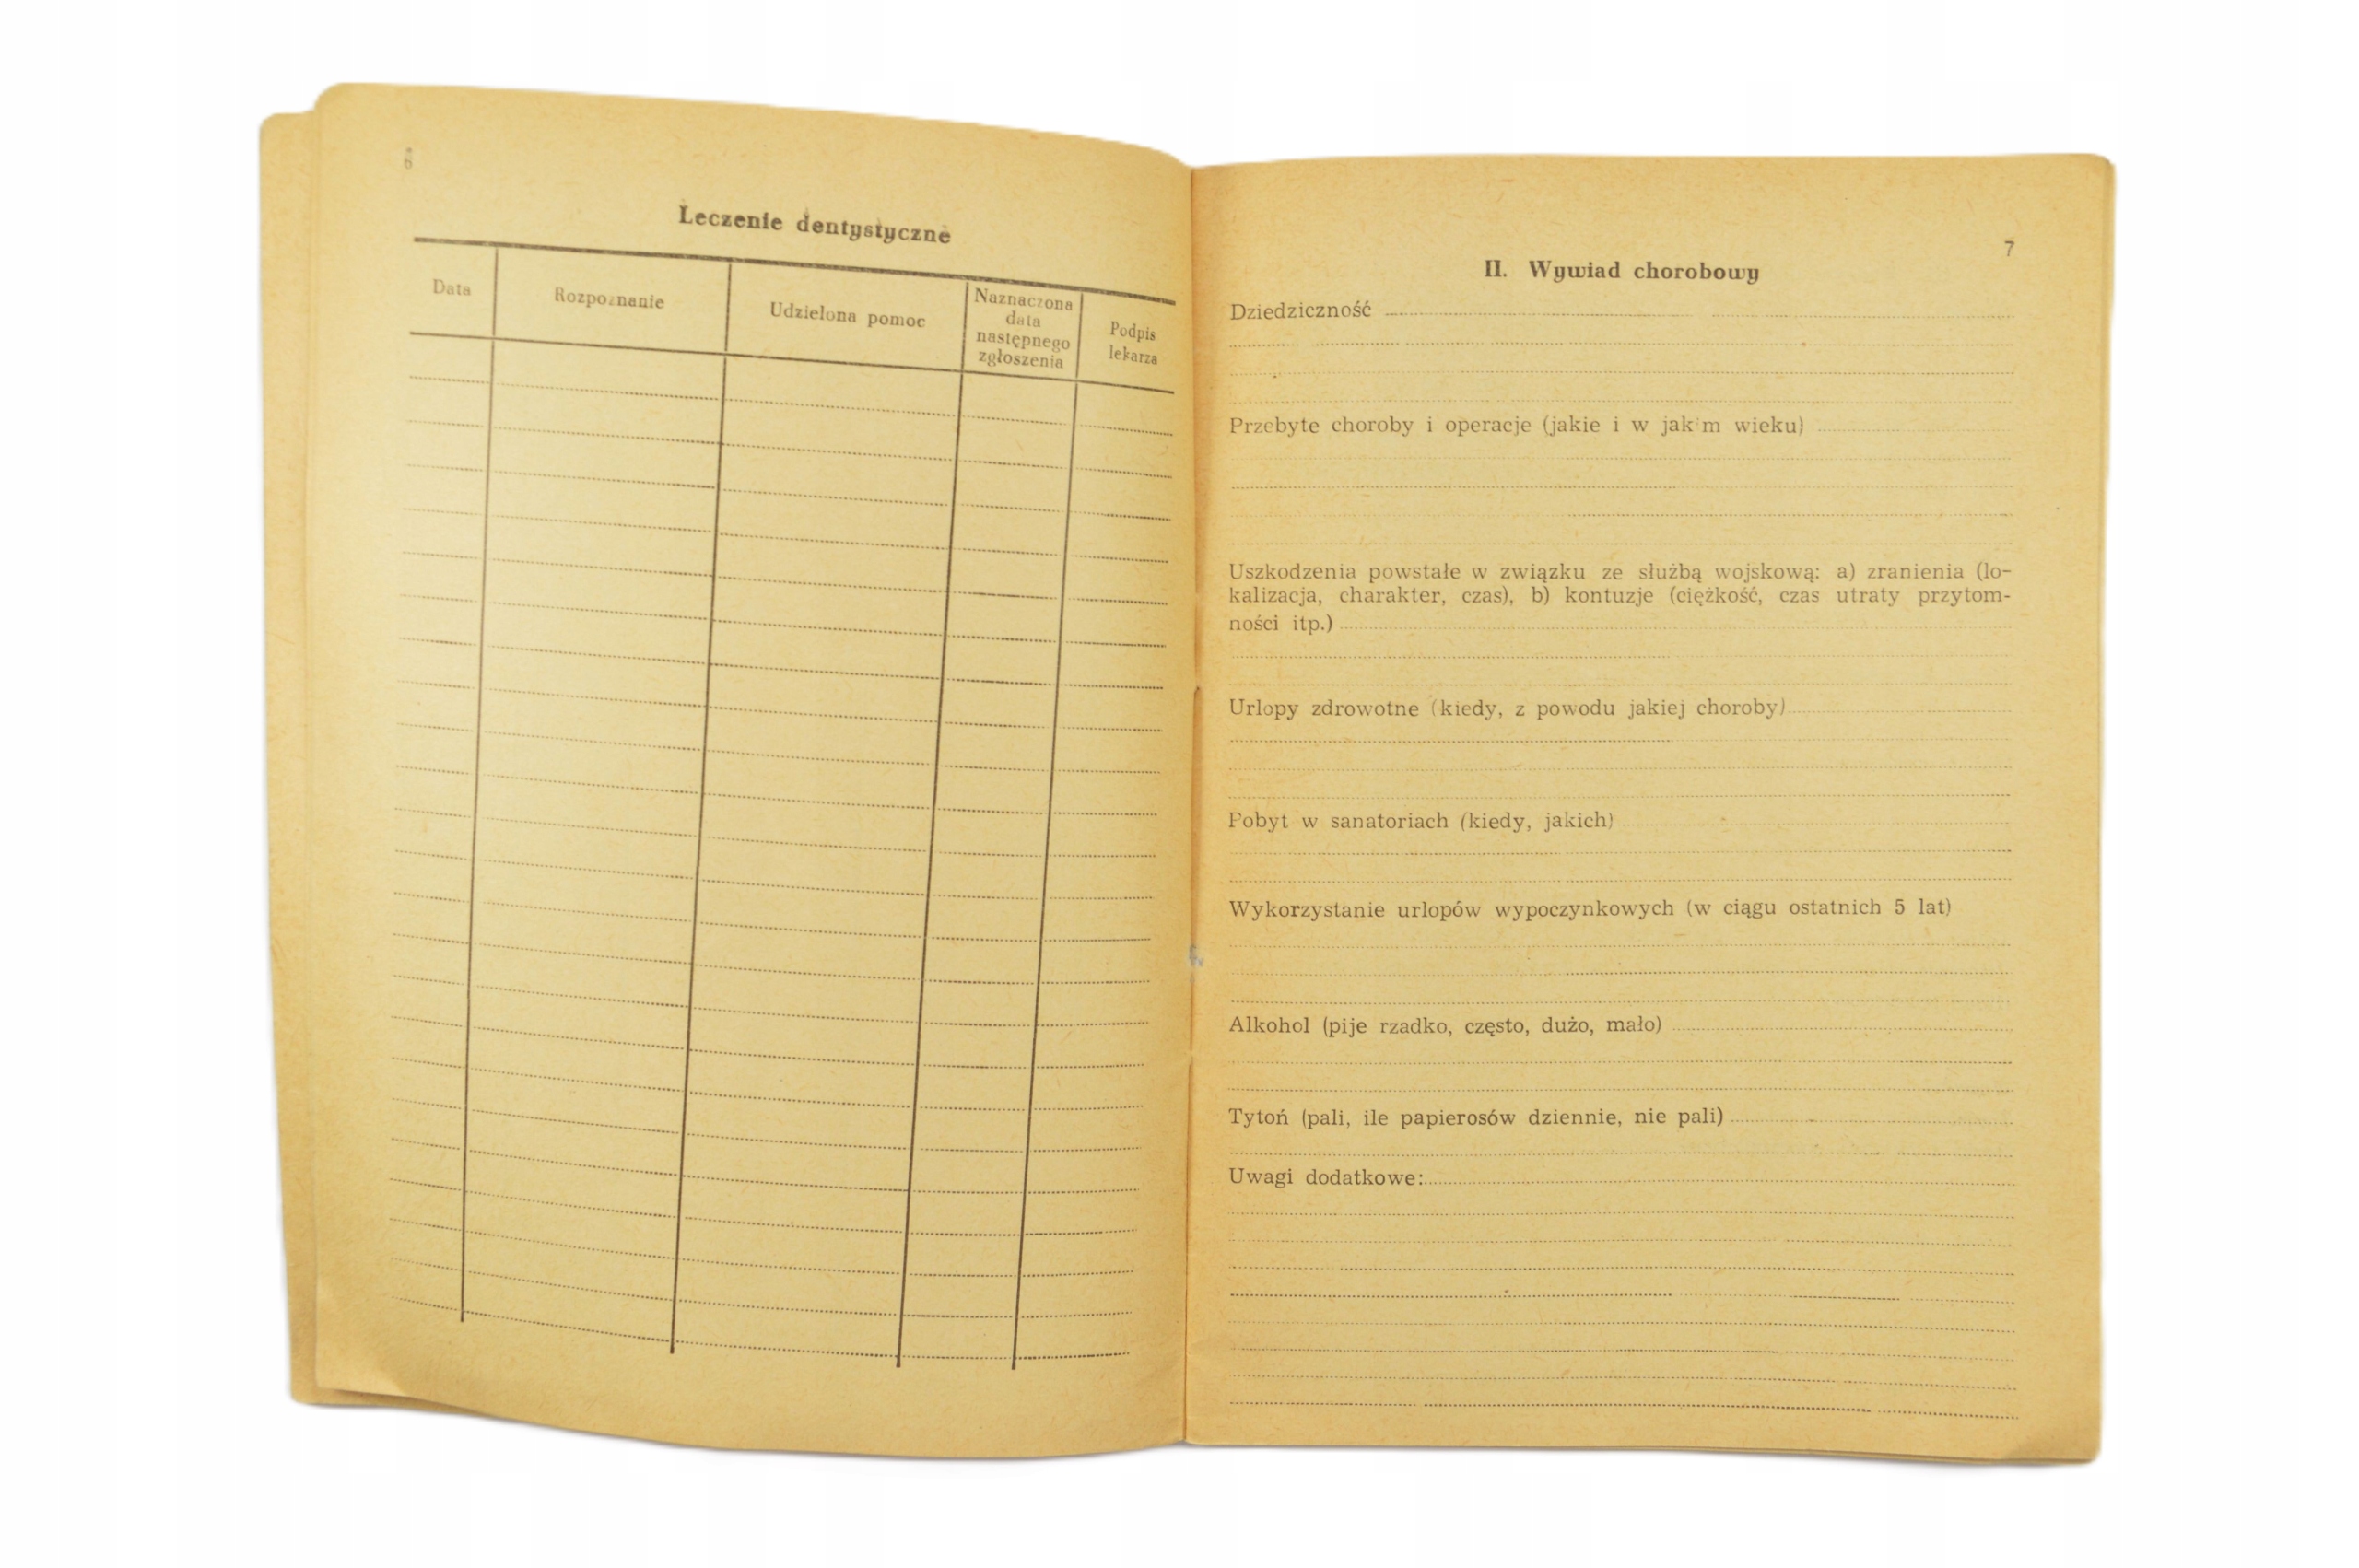 6
Leczenie dentystyczne
Data
Rozpoznanie
Udzielona pomoc
Naznaczona
data
następnego
zgłoszenia
Podpis
lekarza
7
II. Wywiad chorobowy
Dziedziczność
Przebyte choroby i operacje (jakie i w jakim wieku)
Uszkodzenia powstałe w związku ze służbą wojskową: a) zranienia (lo-
kalizacja, charakter, czas), b) kontuzje (ciężkość, czas utraty przytom-
ności itp.)
Urlopy zdrowotne (kiedy, z powodu jakiej choroby)
Pobyt w sanatoriach (kiedy, jakich)
Wykorzystanie urlopów wypoczynkowych (w ciągu ostatnich 5 lat)
Alkohol (pije rzadko, często, dużo, mało)
Tytoń (pali, ile papierosów dziennie, nie pali)
Uwagi dodatkowe: